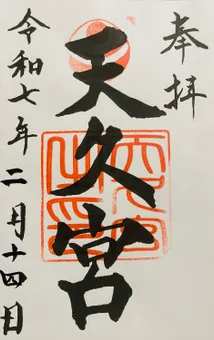 奉拝
天久宮
令和七年二月十四日